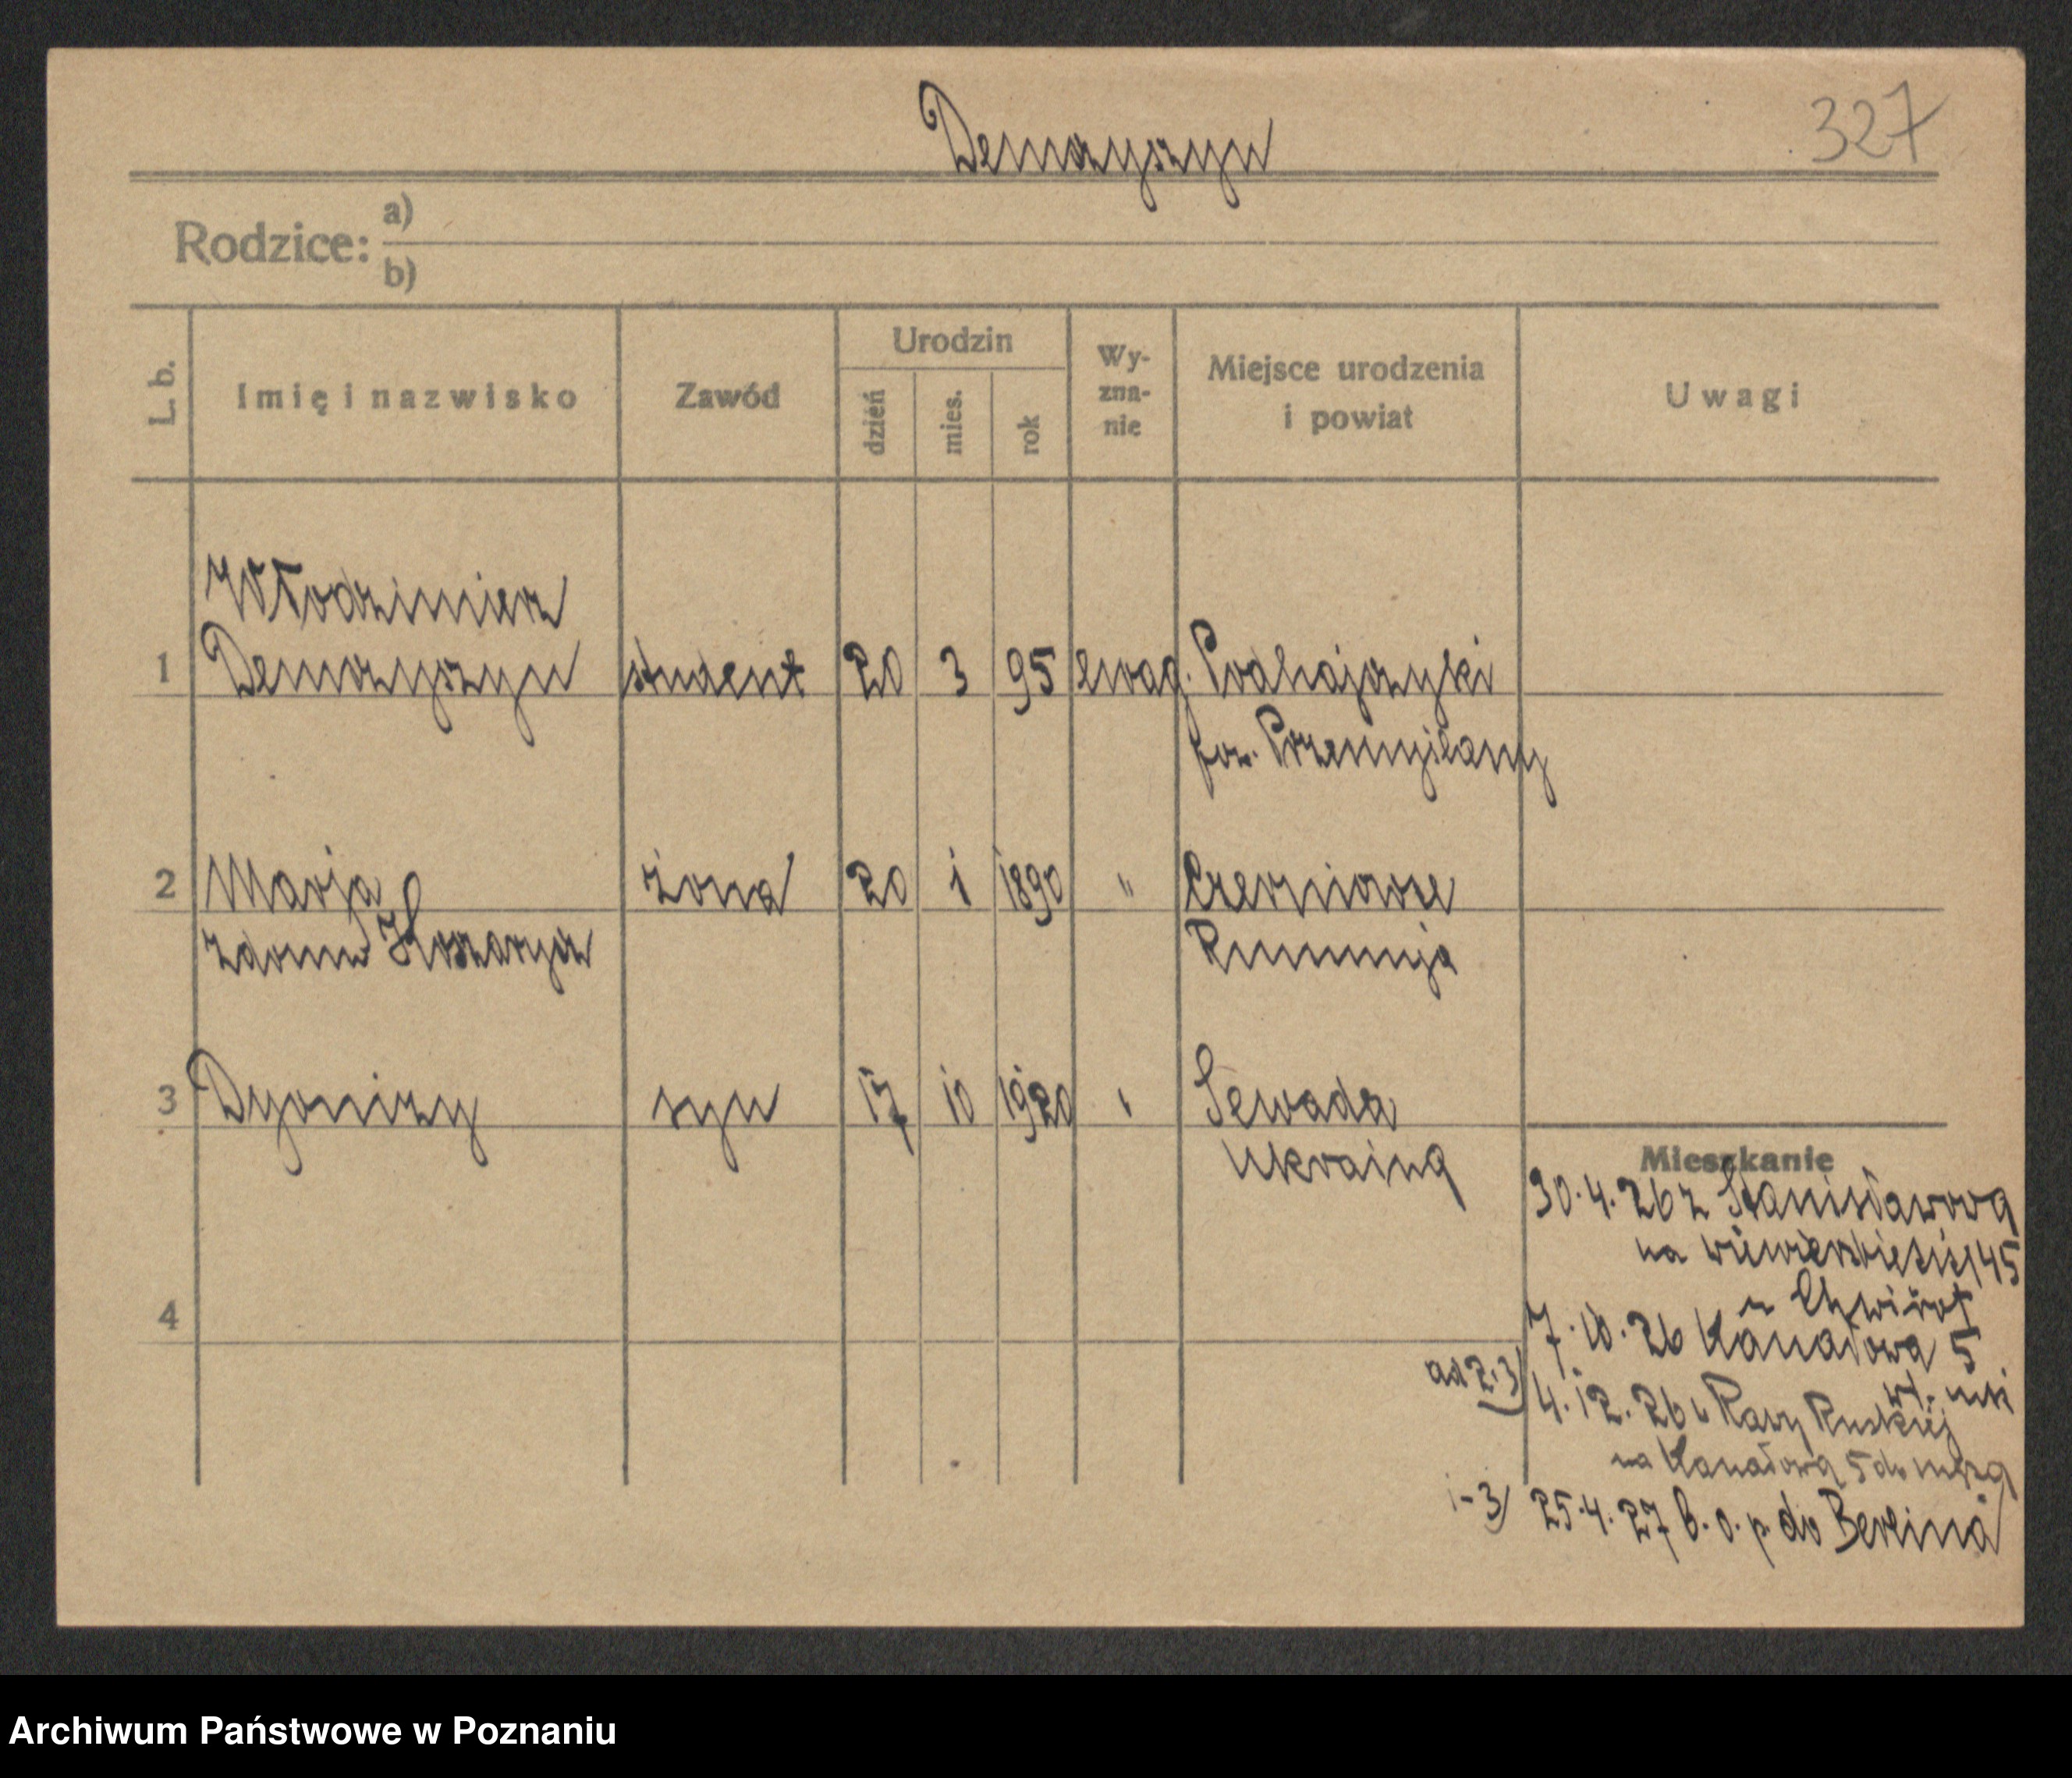 Demczyszyn
327
Rodzice:
a)
b)
L. b.
Imię i nazwisko
Zawód
Urodzin
dzień
mies.
rok
Wy-
zna-
nie
Miejsce urodzenia
i powiat
Uwagi
Włodzimierz
1 Demczyszyn student 20 3 95 ewag. Podhajczyki
pow. Przemyślany
2 Marja żona 20 1 1890 " Czerniowce
zdomu Rumunja
3 Dyonizy syn 17 10 1920 "
Ukraina
Mieszkanie
30.4.26 z Stanisławowa
na
7.10.26 Kanałowa 5
4
ad 2.3) 4.12.26 z Rawy Ruskiej
na Kanałową 5 do męża
1-3) 25.4.27 b. o. p. do Berlina
Archiwum Państwowe w Poznaniu